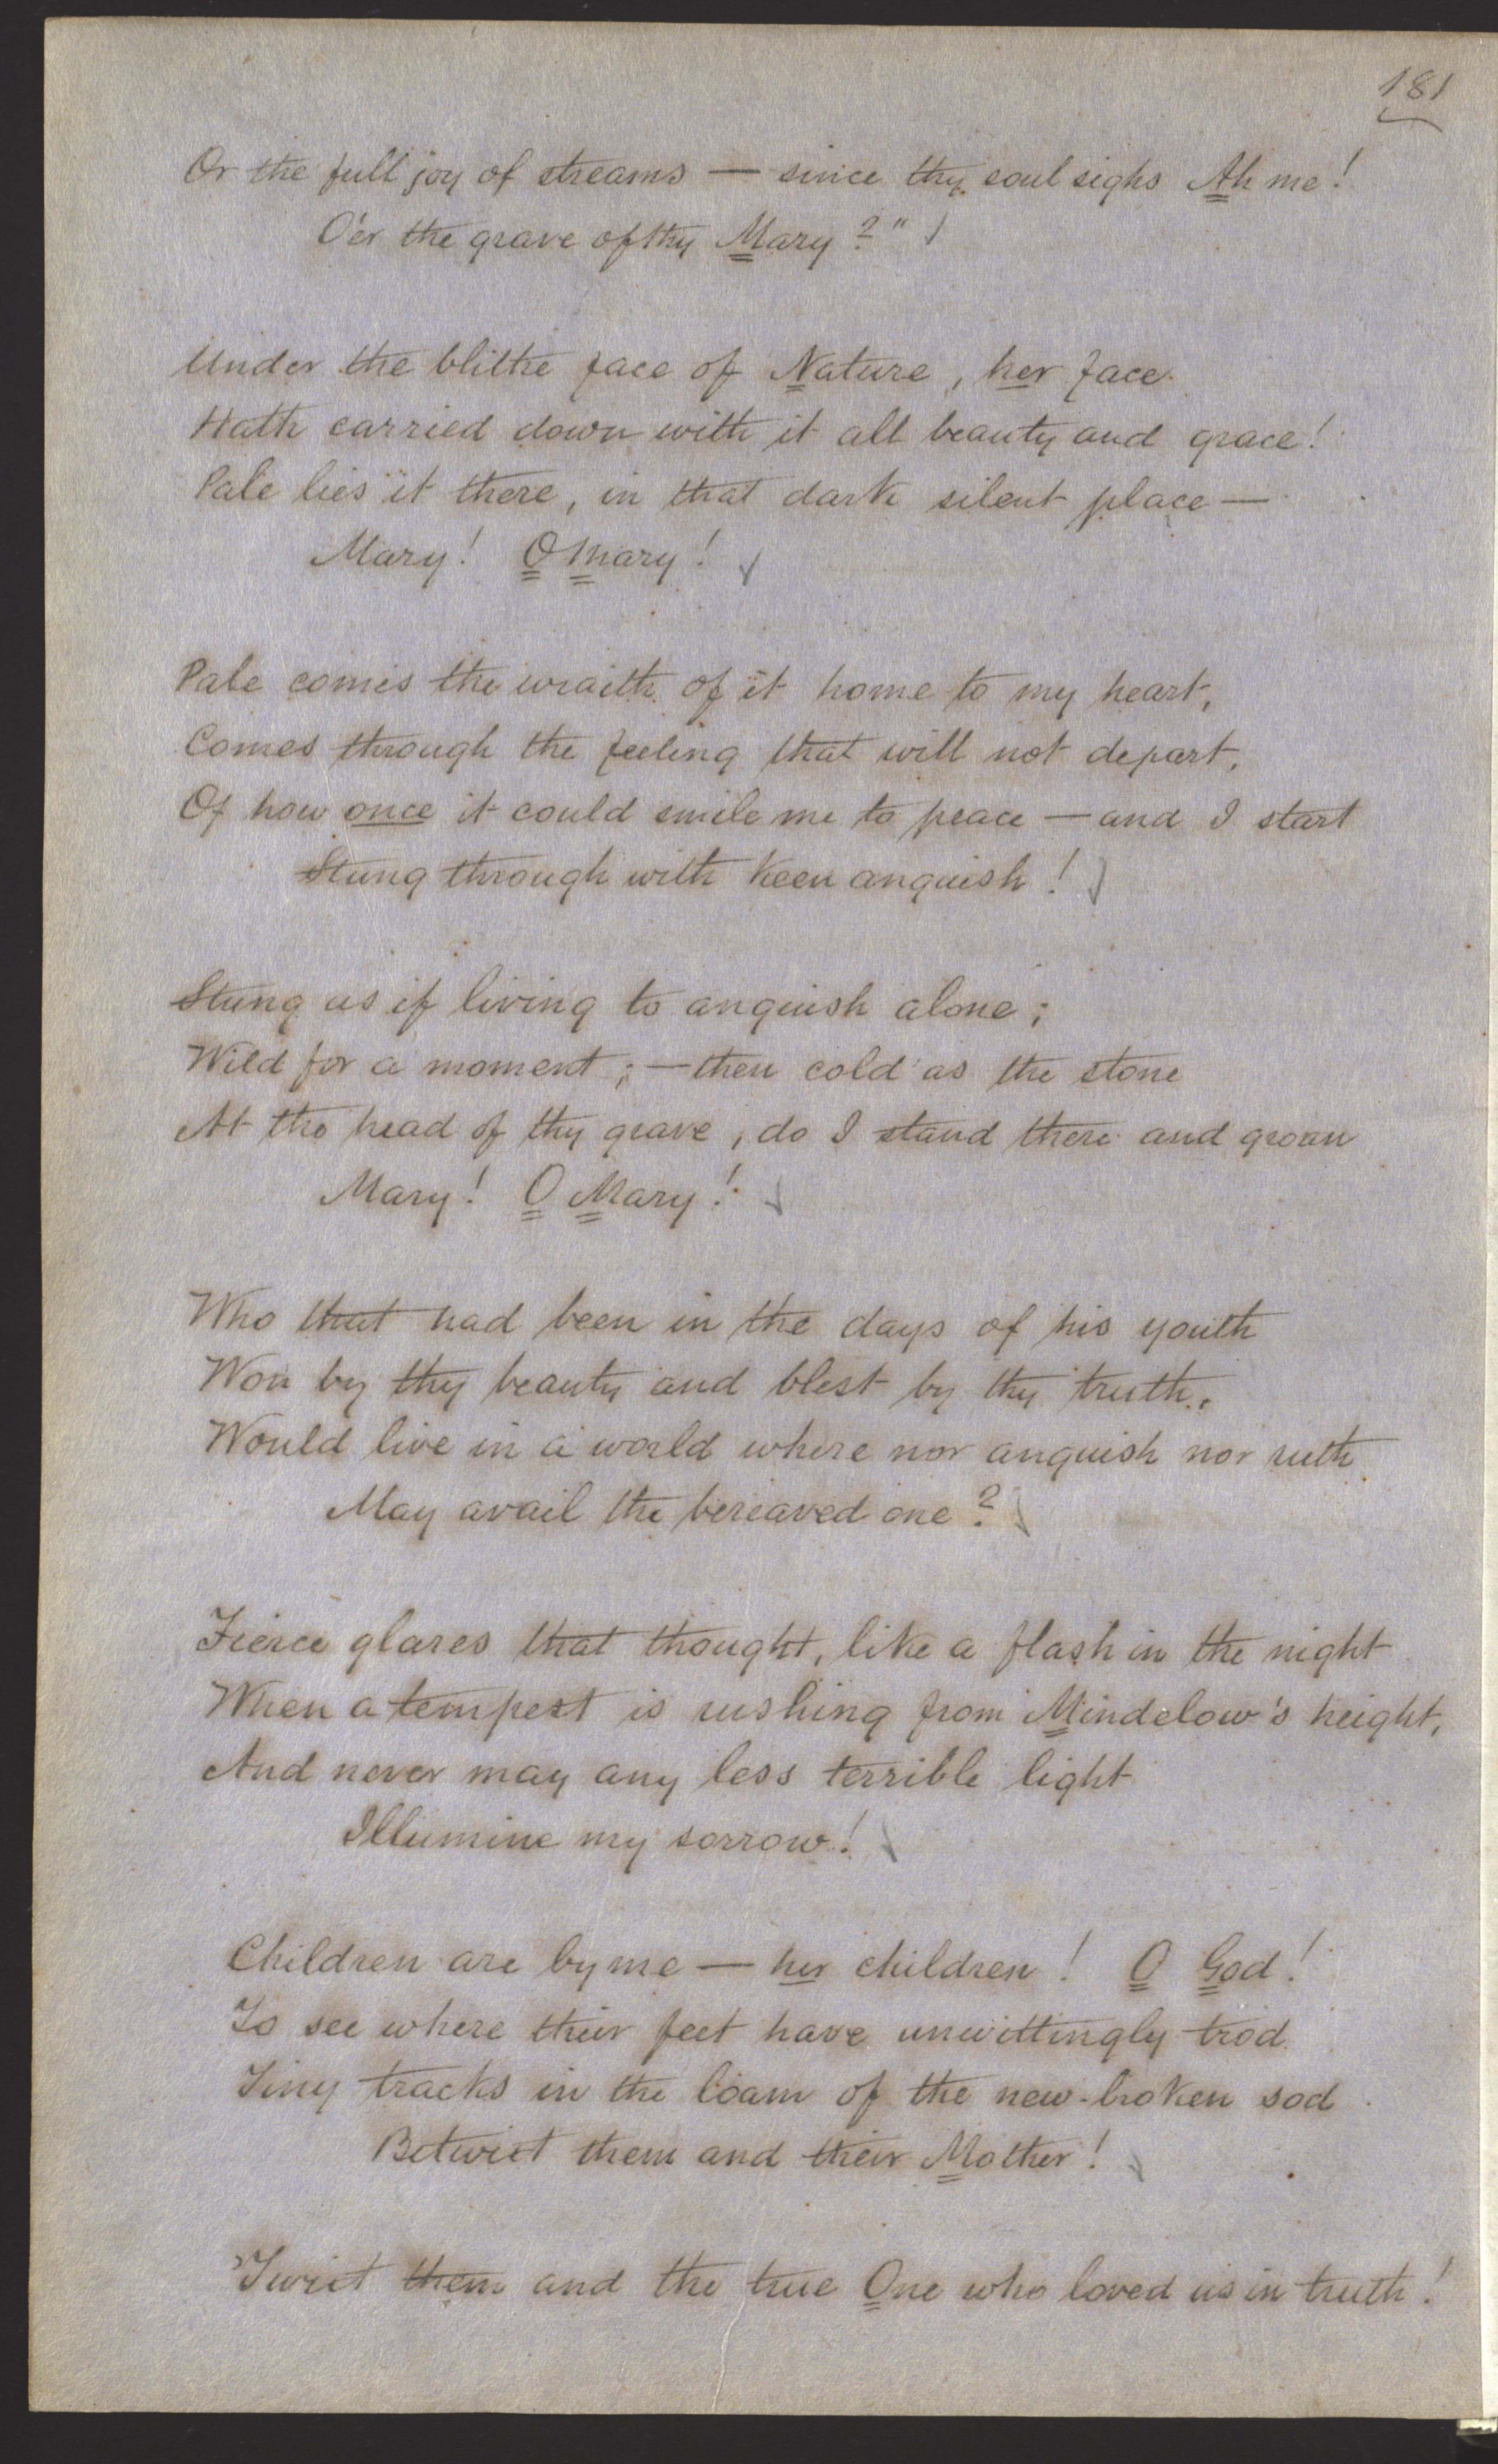 181
Or the full joy of streams — since thy soul sighs Ah me!
O'er the grave of thy Mary?"
Under the blithe face of Nature, her face
Hath carried down with it all beauty and grace!
Pale lies it there, in that dark silent place —
Mary! O Mary!
Pale comes the wraith of it home to my heart,
Comes through the feeling that will not depart,
Of how once it could smile me to peace — and I start
Stung through with keen anguish!
Stung as if living to anguish alone;
Wild for a moment; — then cold as the stone
At the head of thy grave, do I stand there and groan
Mary! O Mary!
Who that had been in the days of his youth
Won by thy beauty and blest by thy truth,
Would live in a world where nor anguish nor ruth
May avail the bereaved one?
Fierce glares that thought, like a flash in the night
When a tempest is rushing from Mindelow's height,
And never may any less terrible light
Illumine my sorrow!
Children are by me — her children! O God!
To see where their feet have unwittingly trod
Tiny tracks in the loam of the new-broken sod
Betwixt them and their Mother!
'Twixt them and the true One who loved us in truth!